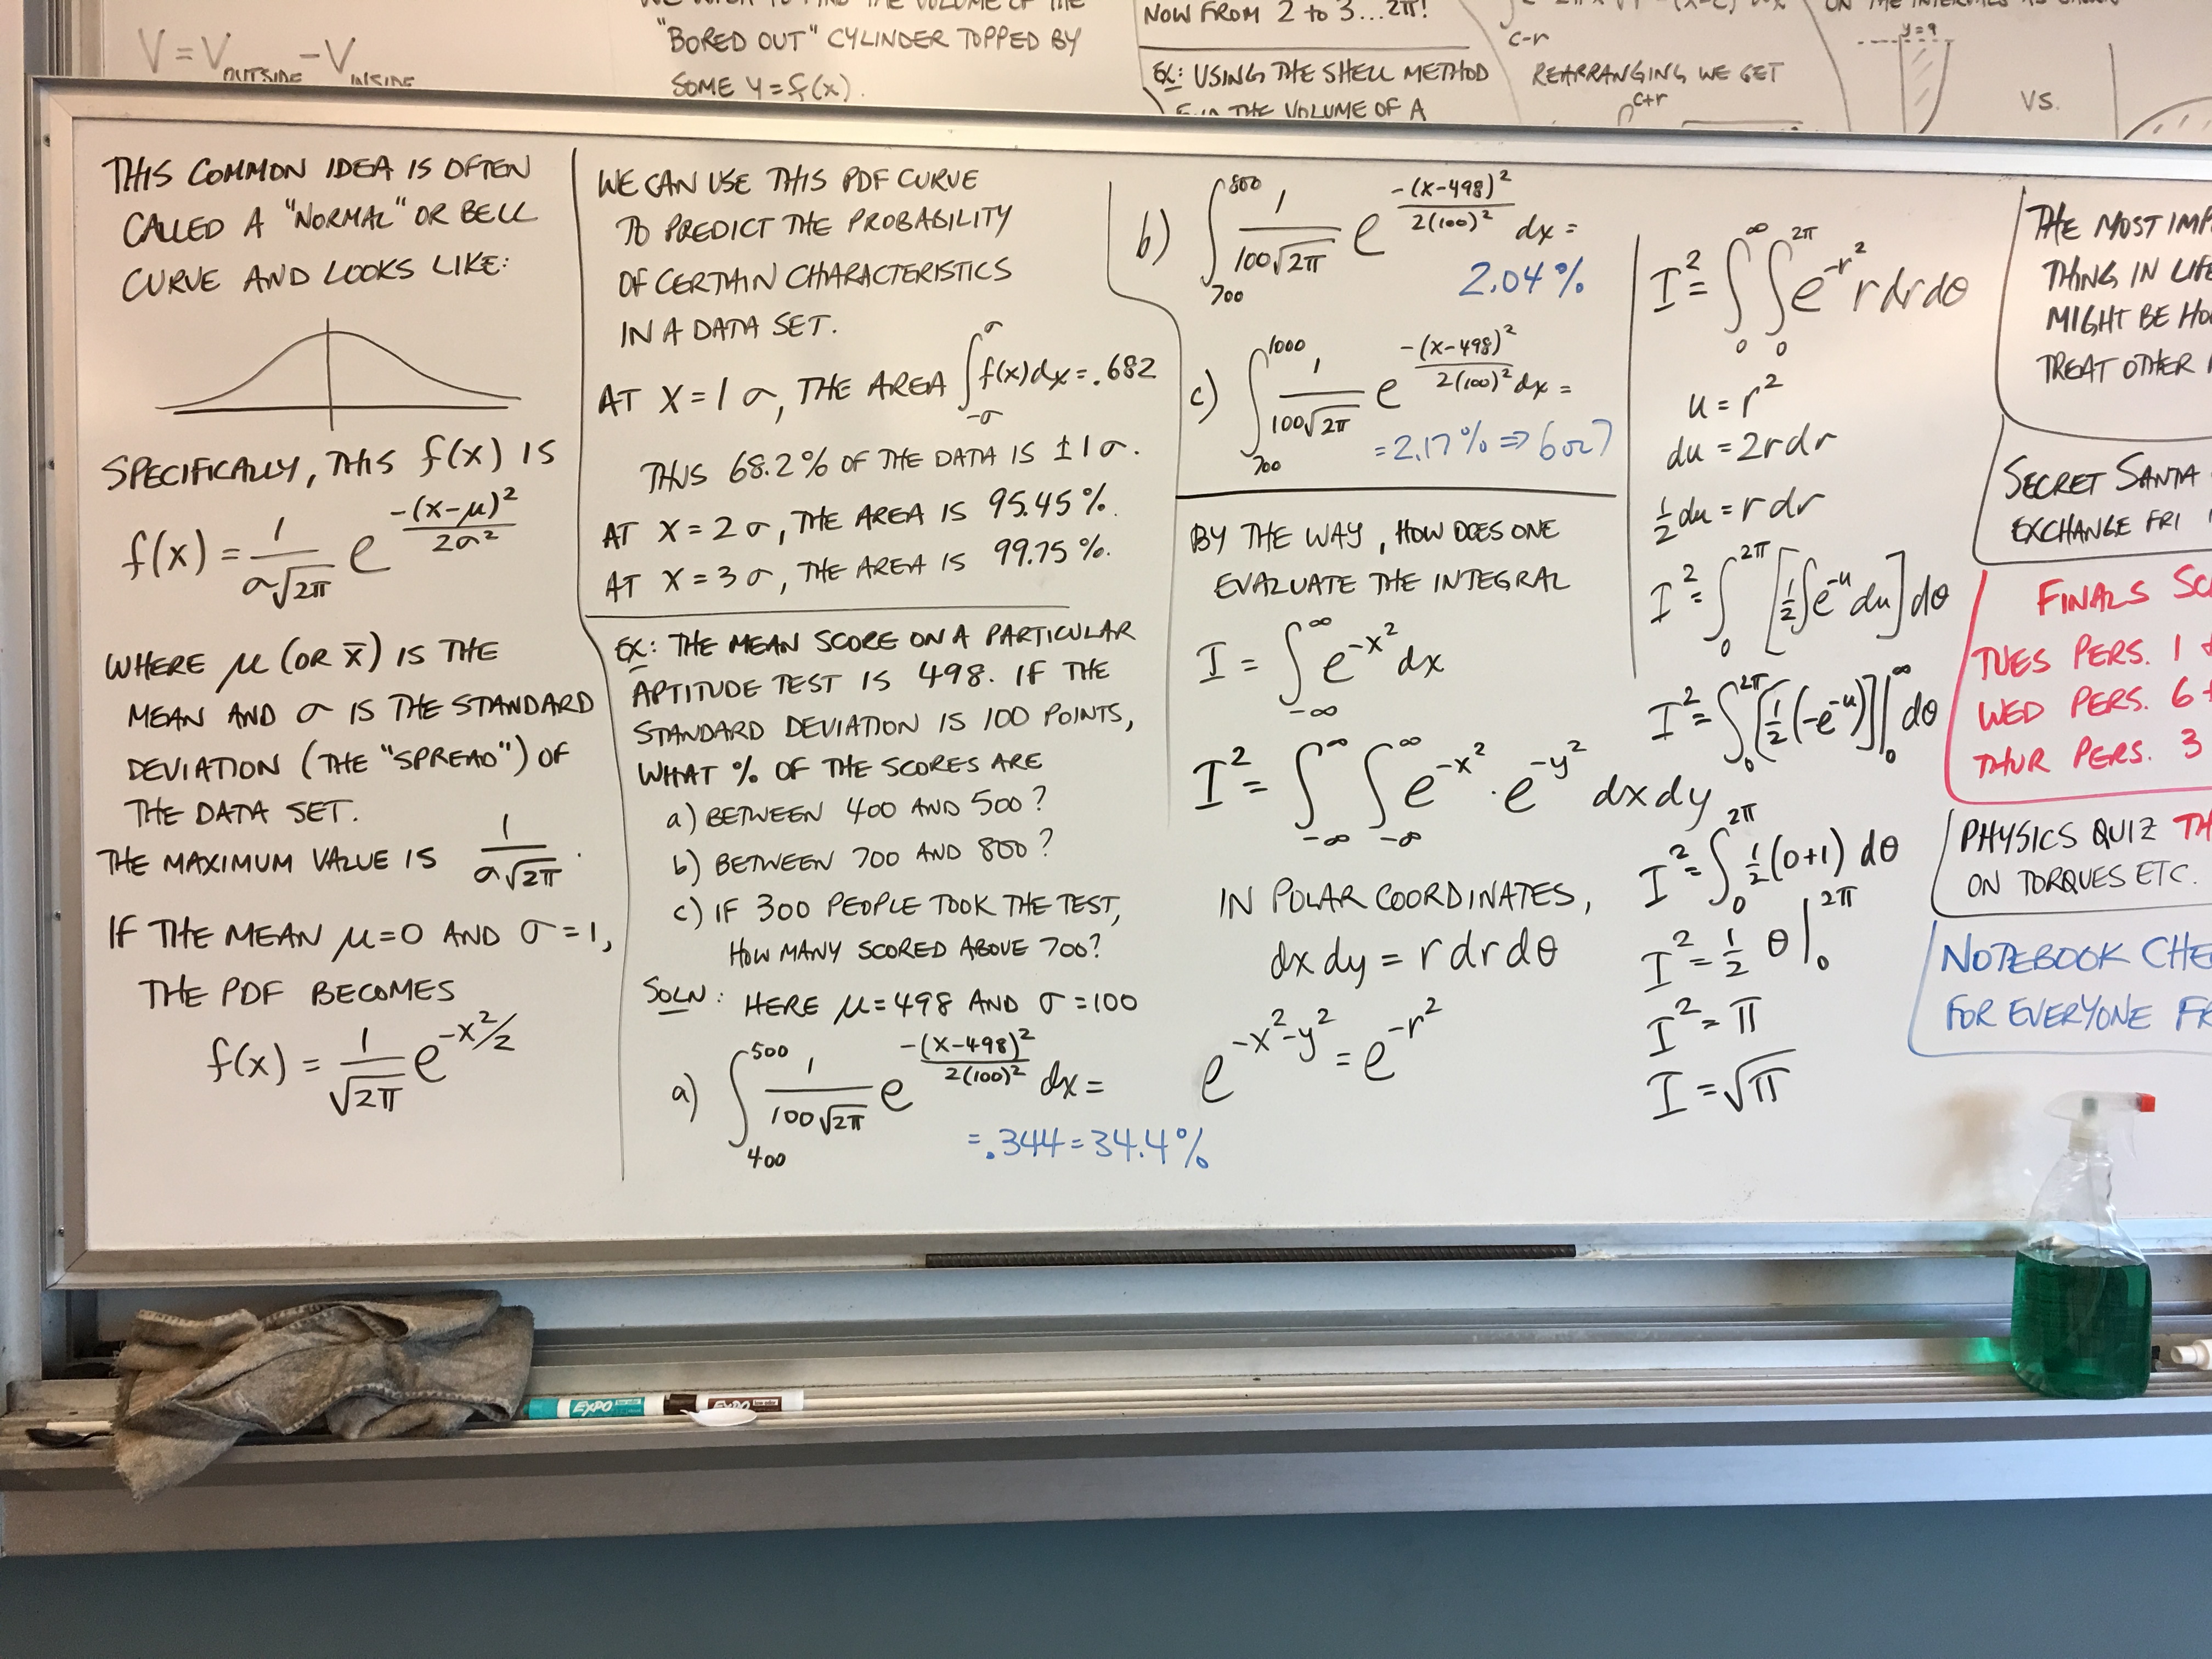 V = V OUTSIDE - V INSIDE
"BORED OUT" CYLINDER TOPPED BY
SOME y = f(x).
NOW FROM 2 to 3...2π!
EX: USING THE SHELL METHOD
THE VOLUME OF A
c-r
REARRANGING WE GET
c+r
y=9
VS.
THIS COMMON IDEA IS OFTEN
CALLED A "NORMAL" OR BELL
CURVE AND LOOKS LIKE:
SPECIFICALLY, THIS f(x) IS
f(x) = 1/(σ√2π) e^(-(x-μ)²/2σ²)
WHERE μ (OR x̄) IS THE
MEAN AND σ IS THE STANDARD
DEVIATION (THE "SPREAD") OF
THE DATA SET.
THE MAXIMUM VALUE IS 1/(σ√2π).
IF THE MEAN μ=0 AND σ=1,
THE PDF BECOMES
f(x) = 1/√2π e^(-x²/2)
WE CAN USE THIS PDF CURVE
TO PREDICT THE PROBABILITY
OF CERTAIN CHARACTERISTICS
IN A DATA SET.
AT X = 1σ, THE AREA ∫_-σ^σ f(x)dx = .682
THUS 68.2% OF THE DATA IS ±1σ.
AT X = 2σ, THE AREA IS 95.45%.
AT X = 3σ, THE AREA IS 99.75%.
EX: THE MEAN SCORE ON A PARTICULAR
APTITUDE TEST IS 498. IF THE
STANDARD DEVIATION IS 100 POINTS,
WHAT % OF THE SCORES ARE
a) BETWEEN 400 AND 500?
b) BETWEEN 700 AND 800?
c) IF 300 PEOPLE TOOK THE TEST,
HOW MANY SCORED ABOVE 700?
SOLN: HERE μ=498 AND σ=100
a) ∫_400^500 1/(100√2π) e^(-(x-498)²/2(100)²) dx =
= .344 = 34.4%
b) ∫_700^800 1/(100√2π) e^(-(x-498)²/2(100)²) dx =
2.04%
c) ∫_700^1000 1/(100√2π) e^(-(x-498)²/2(100)²) dx =
= 2.17% ⇒ 6 or 7
BY THE WAY, HOW DOES ONE
EVALUATE THE INTEGRAL
I = ∫_-∞^∞ e^(-x²) dx
I² = ∫_-∞^∞ ∫_-∞^∞ e^(-x²) · e^(-y²) dxdy
IN POLAR COORDINATES,
dxdy = r dr dθ
e^(-x²-y²) = e^(-r²)
I² = ∫_0^∞ ∫_0^2π e^(-r²) r dr dθ
u = r²
du = 2rdr
½du = rdr
I² = ∫_0^2π [½∫e^(-u) du] dθ
I² = ∫_0^2π [½(-e^(-u))]|_0^∞ dθ
I² = ∫_0^2π ½(0+1) dθ
I² = ½ θ|_0^2π
I² = π
I = √π
THE MOST
THING IN
MIGHT BE
TREAT OTHER
SECRET SANTA
EXCHANGE FRI
FINALS
TUES PERS. 1
WED PERS. 6
THUR PERS. 3
PHYSICS QUIZ
ON TORQUES ETC.
NOTEBOOK
FOR EVERYONE
EXPO
EXPO